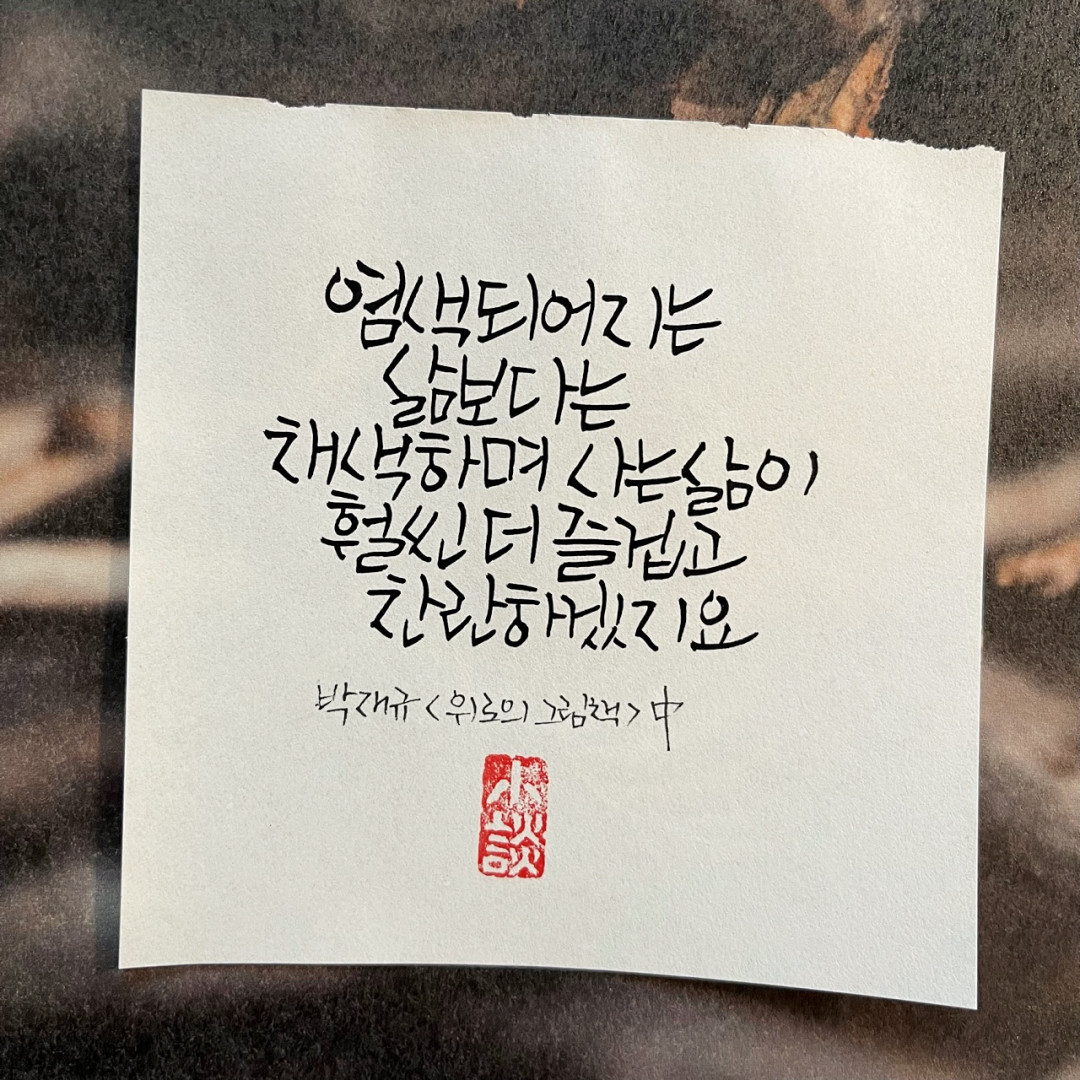 염색되어지는
삶보다는
채색하며 사는 삶이
훨씬 더 즐겁고
찬란하겠지요
박재규 <위로의 그림책> 中
小談